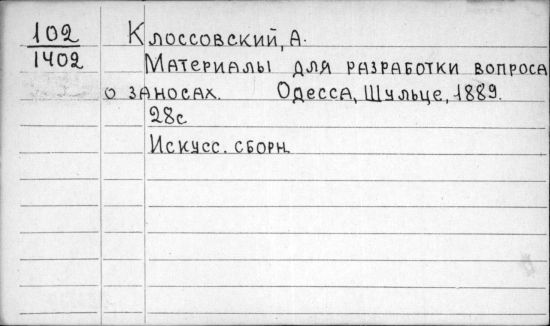 102
1402
Клоссовский, А.
Материалы для разработки вопроса
о заносах. Одесса, Шульце, 1889.
28с
Искусс. сборн.